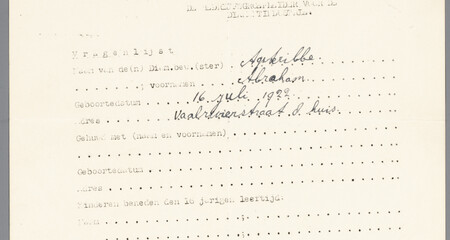 Vragenlijst
Naam van de(n) Diambew.(ster) Agskribbe.
; voornamen Abraham
Geboortedatum 16 Juli 1922
Adres Vaalrivierstraat 8 huis.
Gehuwd met (naam en voornamen)
Geboortedatum
Adres
Kinderen beneden den 16 jarigen leeftijd:
Naam ;
;